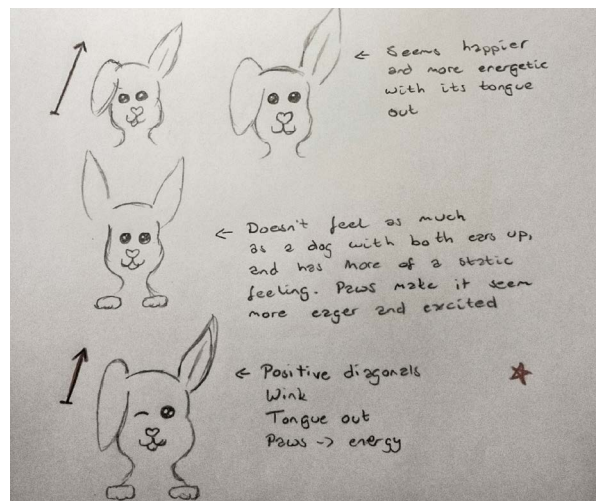 ← Seems happier
and more energetic
with its tongue
out
← Doesn't feel as much
as a dog with both ears up,
and has more of a static
feeling. Paws make it seem
more eager and excited
← Positive diagonals
Wink
Tongue out
Paws -> energy